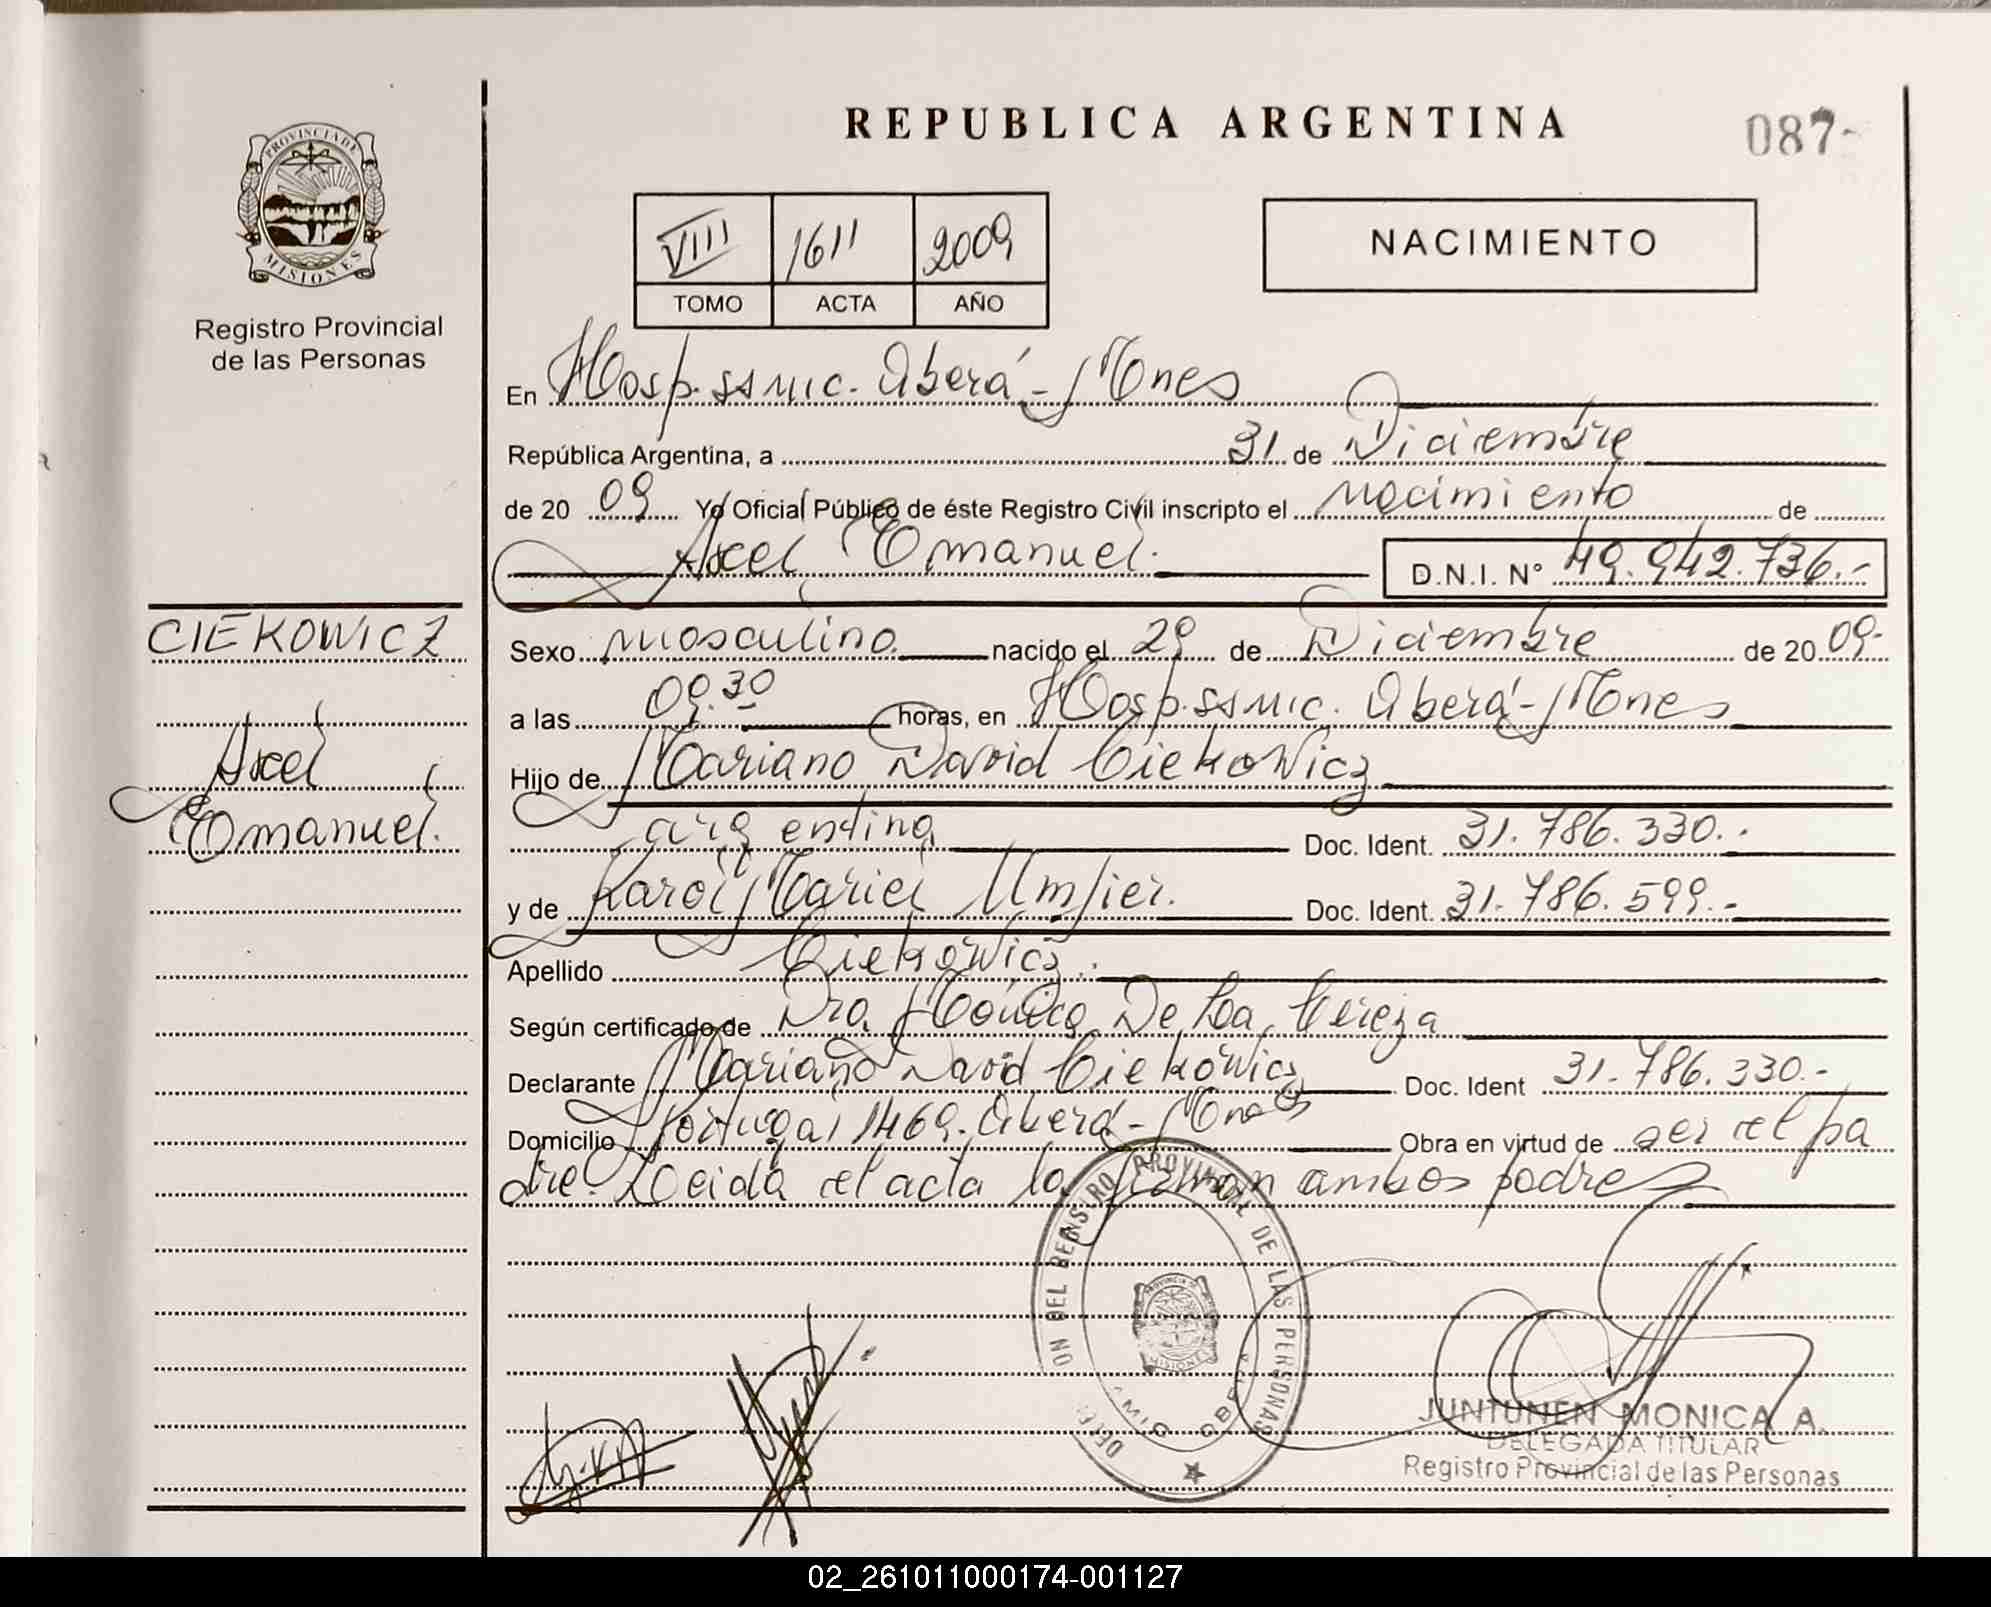 REPUBLICA ARGENTINA
087-
PROVINCIA DE
MISIONES
Registro Provincial
de las Personas
VIII 1611 2009
TOMO ACTA AÑO
NACIMIENTO
En Hosp. SS MIC. Oberá - Mnes
República Argentina, a 31 de Diciembre
de 20 09 Yo Oficial Público de éste Registro Civil inscripto el nacimiento de
Axel Emanuel. D.N.I. Nº 49.942.736.-
CIEKOWICZ
Axel
Emanuel.
Sexo masculino nacido el 29 de Diciembre de 20 09-
a las 09.30 horas, en Hosp. SS MIC. Oberá - Mnes
Hijo de Mariano David Ciekowicz
argentina Doc. Ident. 31.786.330.-
y de Karol Mariel Umfier. Doc. Ident. 31.786.599.-
Apellido Ciekowicz.
Según certificado de Dra. Mónica De La Cereza
Declarante Mariano David Ciekowicz Doc. Ident 31.786.330.-
Domicilio Portugal 1469. Oberá - Mnes Obra en virtud de ser el pa
dre. Leida el acta la firman ambos padres
PROVINCIAL DE LAS PERSONAS
PROVINCIA DE
MISIONES
JUNTUNEN MONICA A.
DELEGADA TITULAR
Registro Provincial de las Personas
02_261011000174-001127